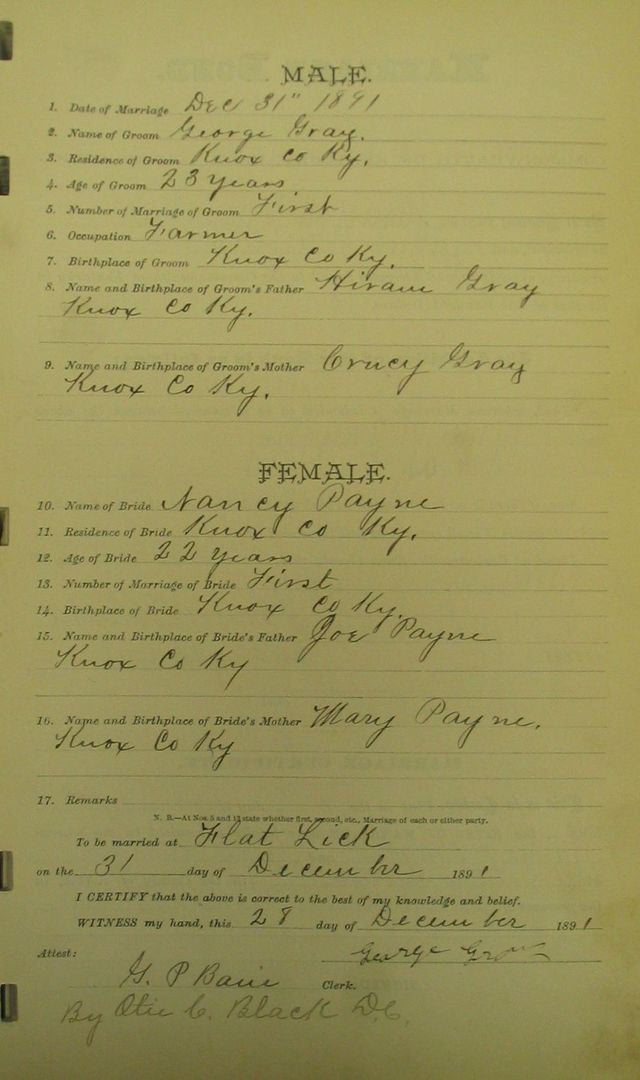 MALE.
1. Date of Marriage Dec 31" 1891
2. Name of Groom George Gray.
3. Residence of Groom Knox Co Ky.
4. Age of Groom 23 years
5. Number of Marriage of Groom First
6. Occupation Farmer
7. Birthplace of Groom Knox Co Ky.
8. Name and Birthplace of Groom's Father Hiram Gray
Knox Co Ky.
9. Name and Birthplace of Groom's Mother Gray
Knox Co Ky.
FEMALE.
10. Name of Bride Nancy Payne
11. Residence of Bride Knox Co Ky.
12. Age of Bride 22 years
13. Number of Marriage of Bride First
14. Birthplace of Bride Knox Co Ky.
15. Name and Birthplace of Bride's Father Joe Payne
Knox Co Ky
16. Name and Birthplace of Bride's Mother Mary Payne.
Knox Co Ky
17. Remarks
N. B.—At Nos. 5 and 13 state whether first, second, etc., Marriage of each or either party.
To be married at Flat Lick
on the 31 day of December 1891
I CERTIFY that the above is correct to the best of my knowledge and belief.
WITNESS my hand, this 28 day of December 1891
George
Attest:
G. P Bain Clerk.
By Otie C. Black D.C.